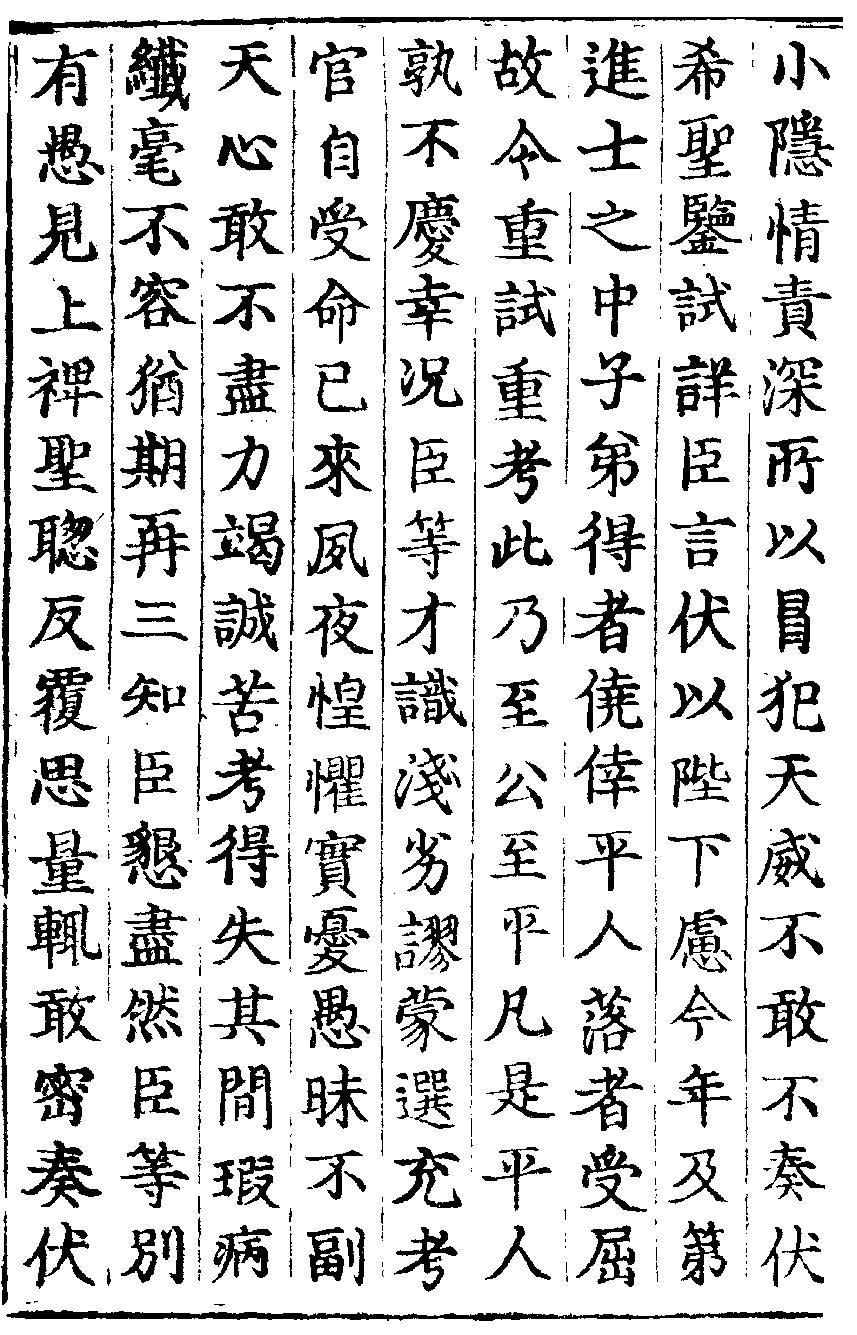 小隱情責深所以冒犯天威不敢不奏伏
希聖鑒試詳臣言伏以陛下慮今年及第
進士之中子弟得者僥倖平人落者受屈
故令重試重考此乃至公至平凡是平人
孰不慶幸况臣等才識淺劣謬蒙選充考
官自受命已來夙夜惶懼實憂愚昧不副
天心敢不盡力竭誠苦考得失其間瑕病
纖毫不容猶期再三知臣懇盡然臣等別
有愚見上裨聖聰反覆思量輒敢密奏伏